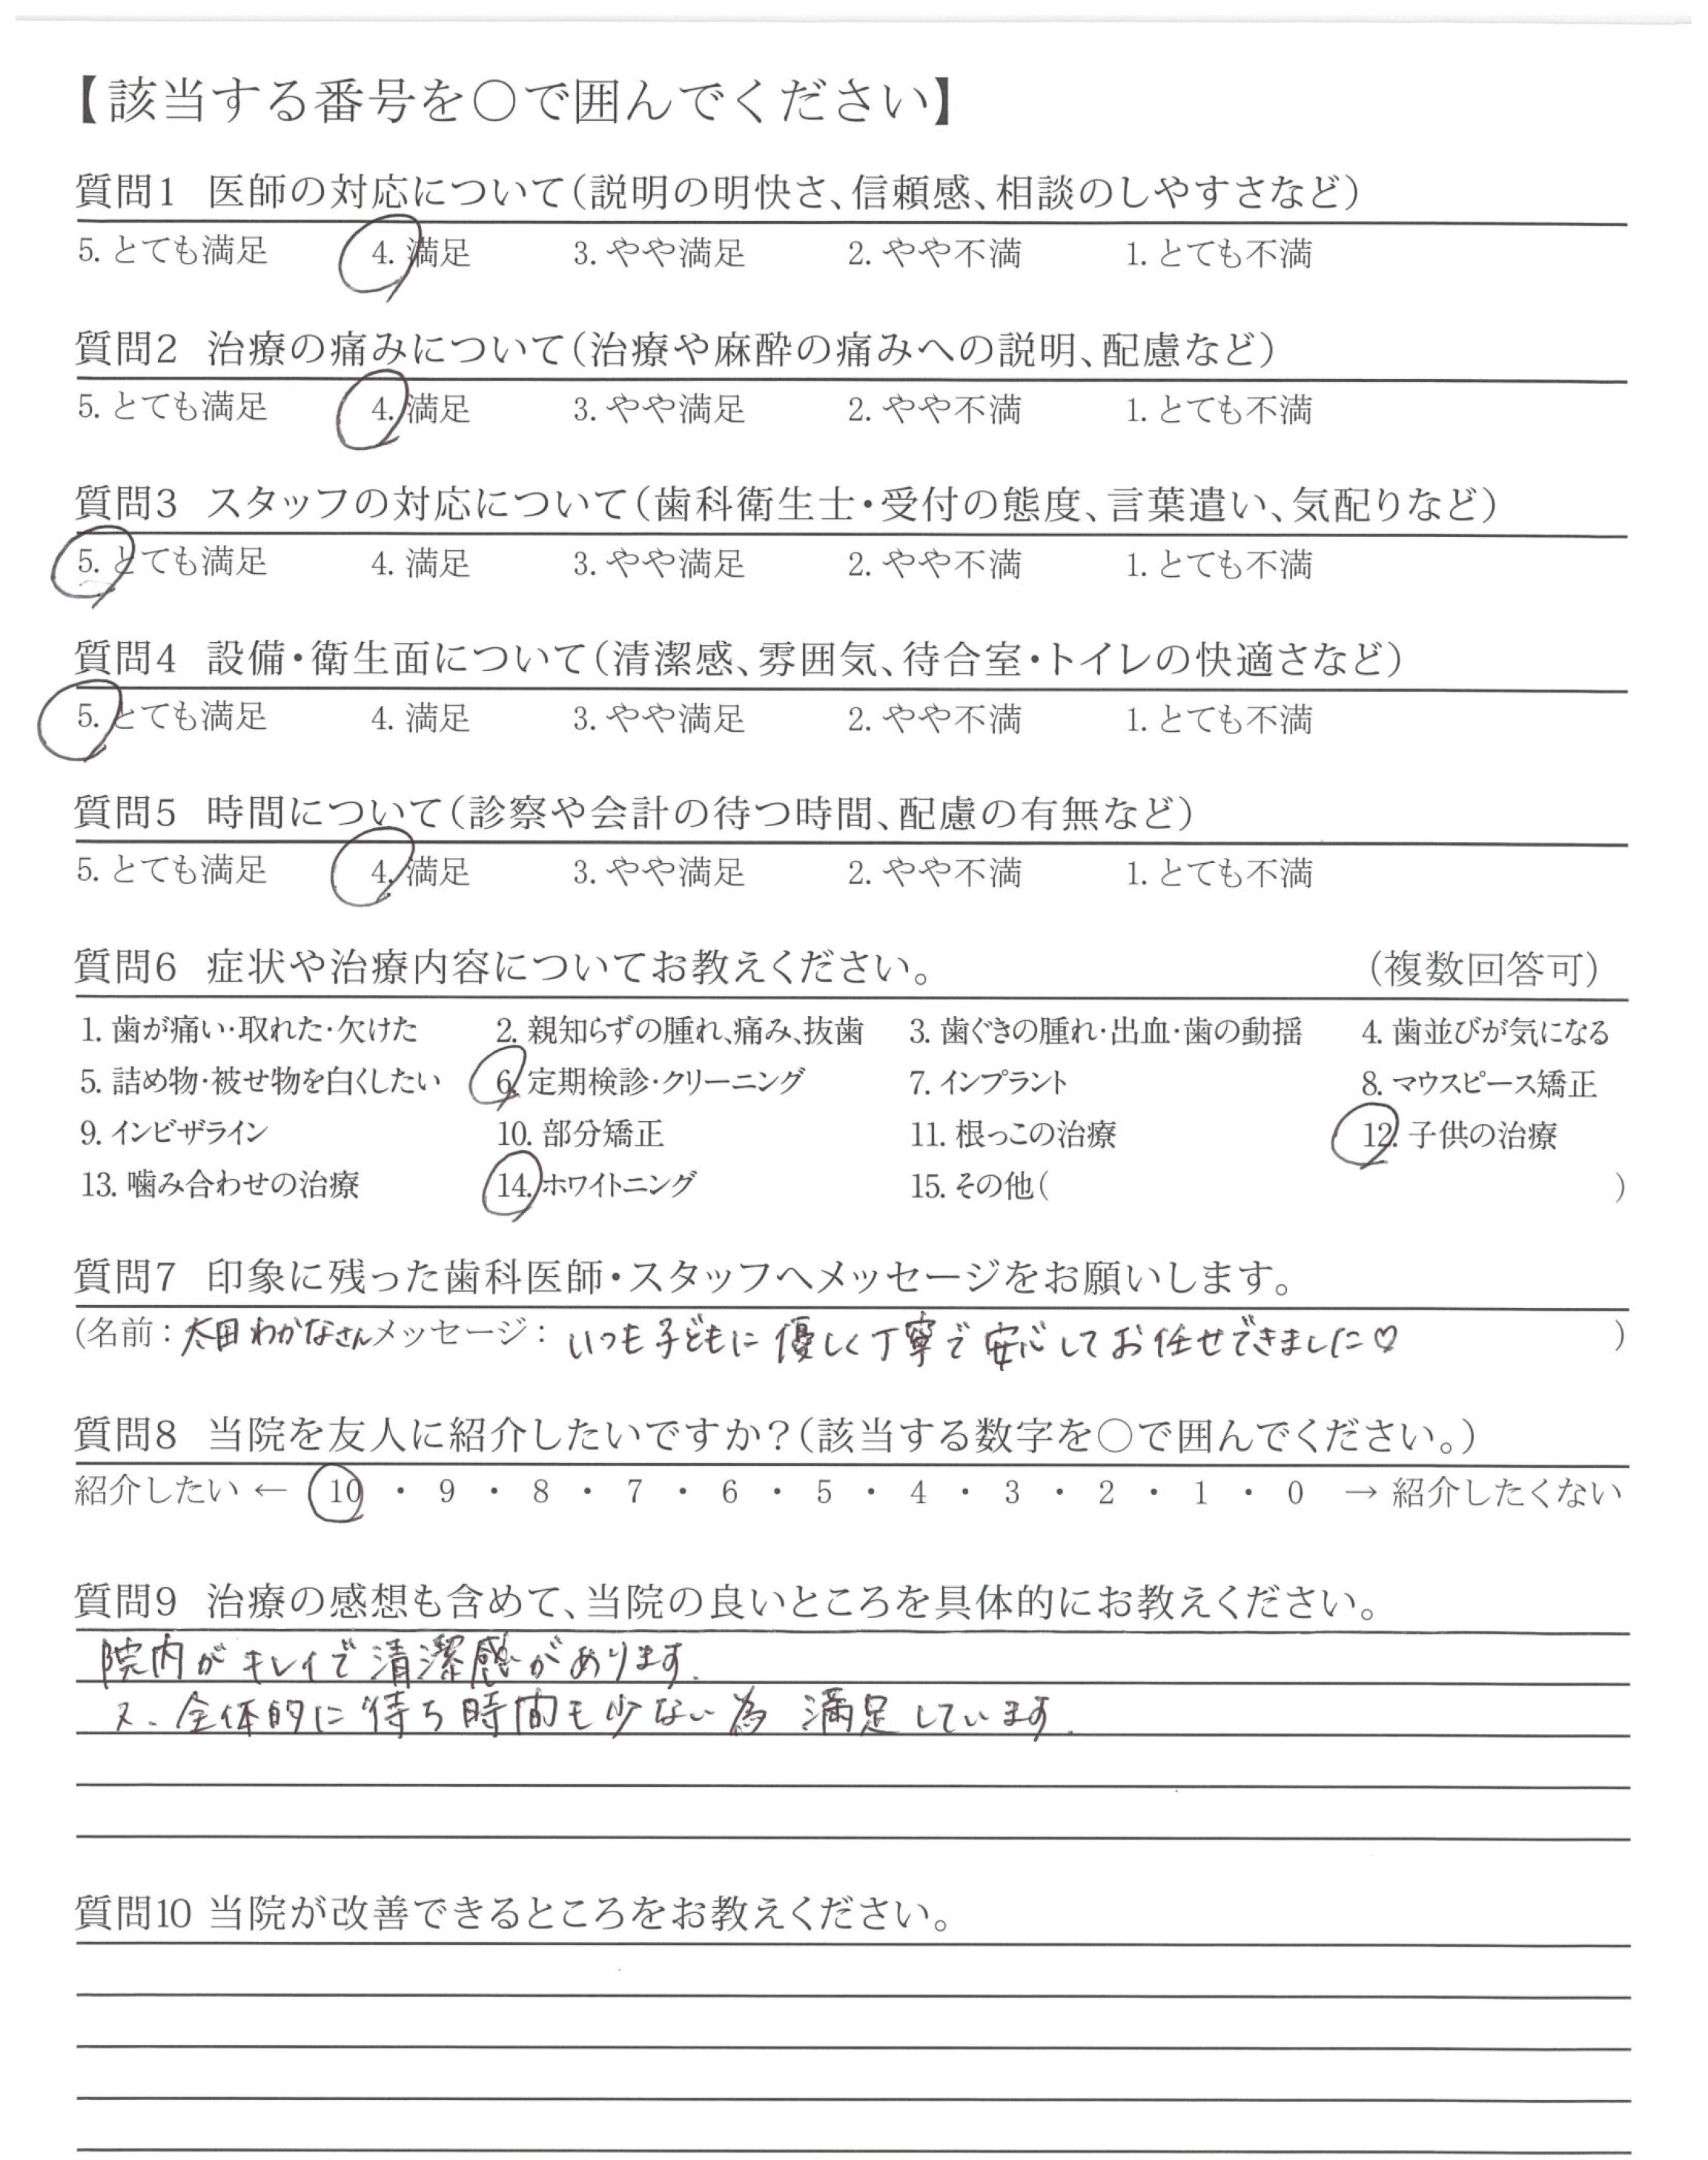 【該当する番号を〇で囲んでください】
質問1 医師の対応について(説明の明快さ、信頼感、相談のしやすさなど)
5. とても満足 4. 満足 3. やや満足 2. やや不満 1. とても不満
質問2 治療の痛みについて(治療や麻酔の痛みへの説明、配慮など)
5. とても満足 4. 満足 3. やや満足 2. やや不満 1. とても不満
質問3 スタッフの対応について(歯科衛生士・受付の態度、言葉遣い、気配りなど)
5. とても満足 4. 満足 3. やや満足 2. やや不満 1. とても不満
質問4 設備・衛生面について(清潔感、雰囲気、待合室・トイレの快適さなど)
5. とても満足 4. 満足 3. やや満足 2. やや不満 1. とても不満
質問5 時間について(診察や会計の待つ時間、配慮の有無など)
5. とても満足 4. 満足 3. やや満足 2. やや不満 1. とても不満
質問6 症状や治療内容についてお教えください。 (複数回答可)
1. 歯が痛い・取れた・欠けた 2. 親知らずの腫れ、痛み、抜歯 3. 歯ぐきの腫れ・出血・歯の動揺 4. 歯並びが気になる
5. 詰め物・被せ物を白くしたい 6. 定期検診・クリーニング 7. インプラント 8. マウスピース矯正
9. インビザライン 10. 部分矯正 11. 根っこの治療 12. 子供の治療
13. 噛み合わせの治療 14. ホワイトニング 15. その他( )
質問7 印象に残った歯科医師・スタッフへメッセージをお願いします。
(名前：太田わかなさんメッセージ：いつも子どもに優しく丁寧で安心してお任せできました♡ )
質問8 当院を友人に紹介したいですか？(該当する数字を〇で囲んでください。)
紹介したい ← 10 ・ 9 ・ 8 ・ 7 ・ 6 ・ 5 ・ 4 ・ 3 ・ 2 ・ 1 ・ 0 → 紹介したくない
質問9 治療の感想も含めて、当院の良いところを具体的にお教えください。
院内がキレイで清潔感があります。
又、全体的に待ち時間も少ない為 満足しています。
質問10 当院が改善できるところをお教えください。